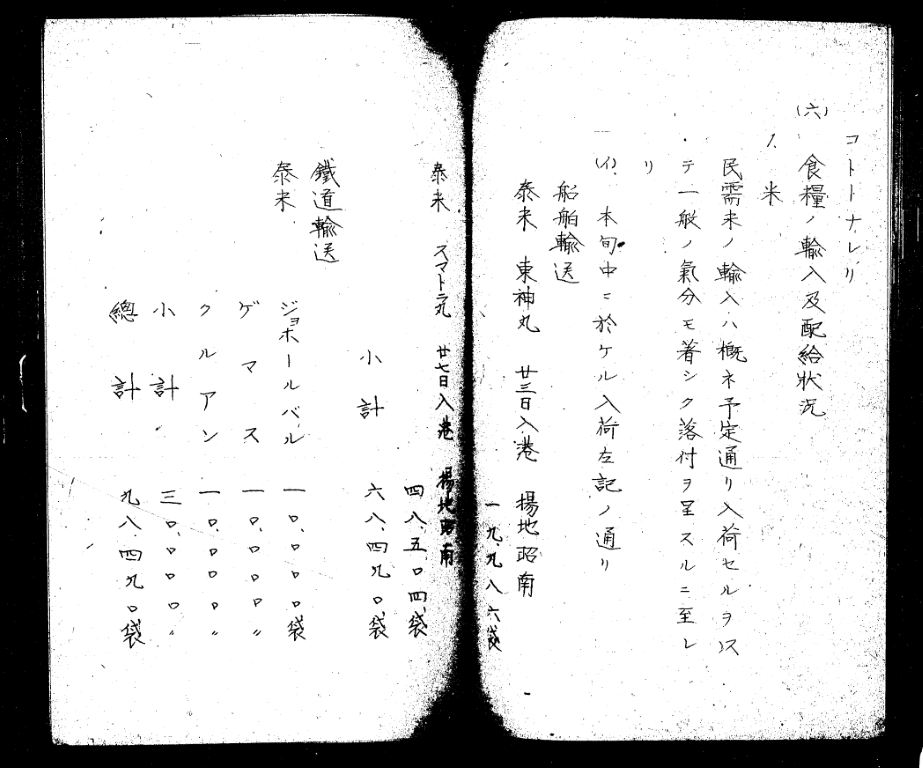 コトトナレリ
(六) 食糧ノ輸入及配給状況
1. 米
民需米ノ輸入ハ概ネ予定通リ入荷セルヲ以
テ一般ノ氣分モ著シク落付ヲ呈スルニ至レ
リ
(イ). 本旬中ニ於ケル入荷左記ノ通リ
船舶輸送
泰米 東神丸 廿三日入港 揚地昭南
一九.九八六袋
泰米 スマトラ丸 廿七日入港 揚地昭南
四八.五〇四袋
小計 六八.四九〇袋
鐵道輸送
泰米 ジョホールバール 一〇.〇〇〇袋
ゲマス 一〇.〇〇〇〃
クルアン 一〇.〇〇〇〃
小計 三〇.〇〇〇〃
總計 九八.四九〇袋